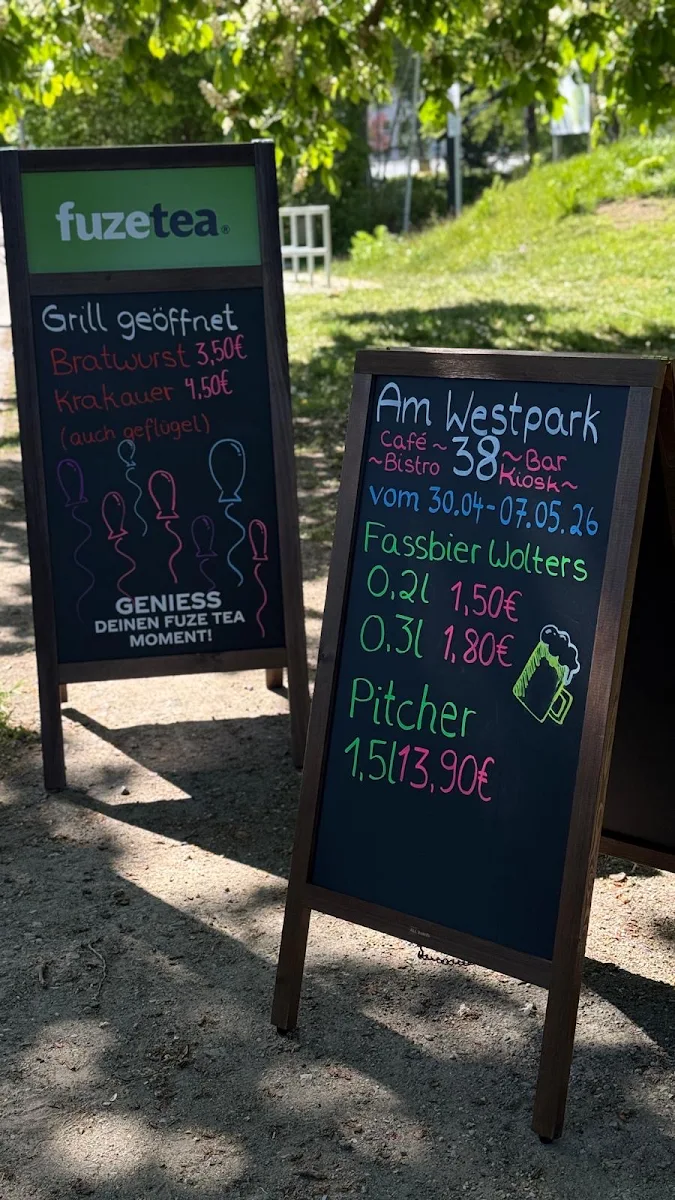 fuzetea®
Grill geöffnet
Bratwurst 3,50€
Krakauer 4,50€
(auch geflügel)
GENIESS
DEINEN FUZE TEA
MOMENT!
Am Westpark
Café ~ 38 ~ Bar
~Bistro Kiosk~
vom 30.04-07.05.26
Fassbier Wolters
0,2l 1,50€
0.3l 1,80€
Pitcher
1,5l 13,90€